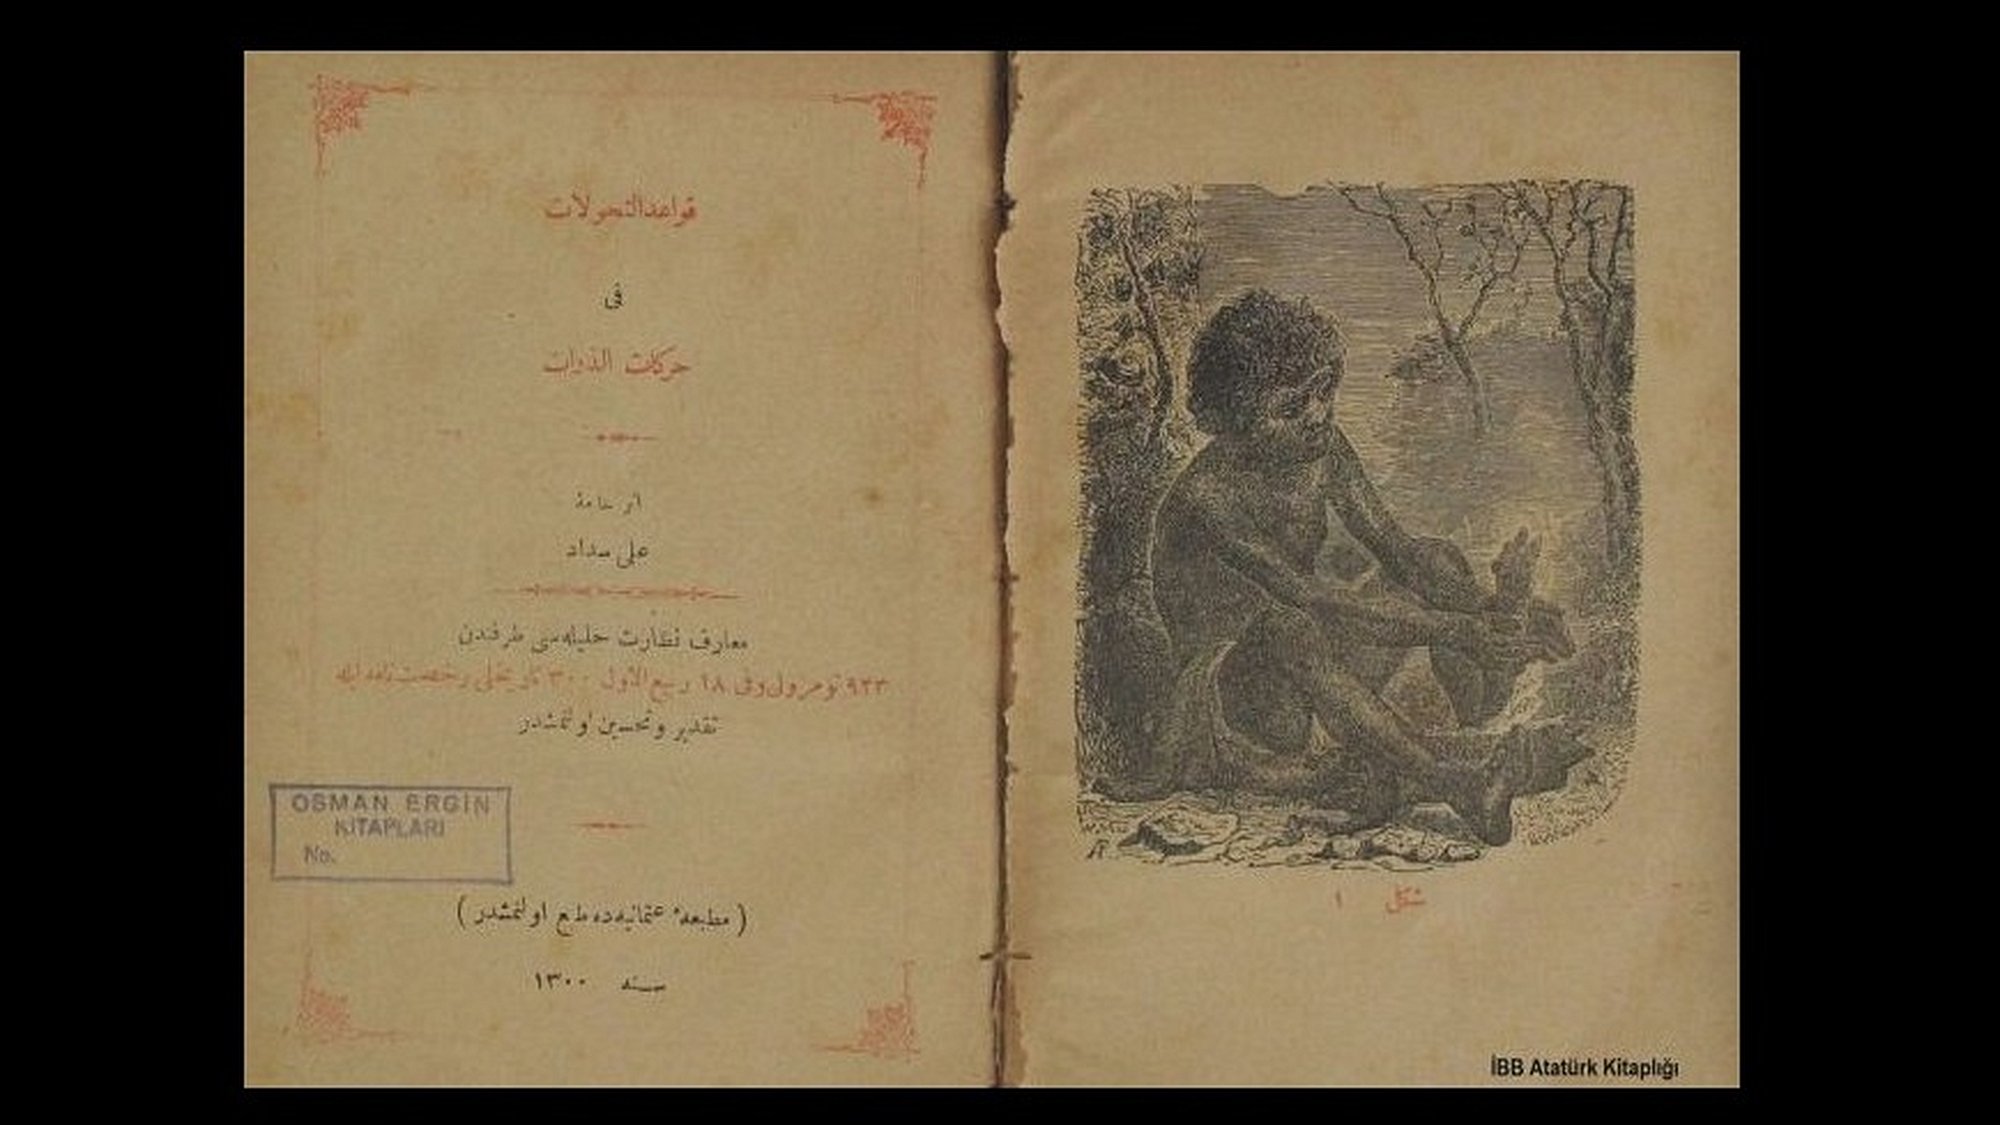 قواعد التحولات
فى
حركات الذرات
اثر خامۀ
على سداد
معارف نظارت جليله سى طرفندن
٩٢٣ نومرولى وفى ١٨ ربيع الاول ٣٠٠ تاريخلى رخصتنامه ايله
تقدير وتحسين اولنمشدر
OSMAN ERGİN
KİTAPLARI
No.
( مطبعۀ عثمانيه ده طبع اولنمشدر )
سنه ١٣٠٠
شكل ١
İBB Atatürk Kitaplığı